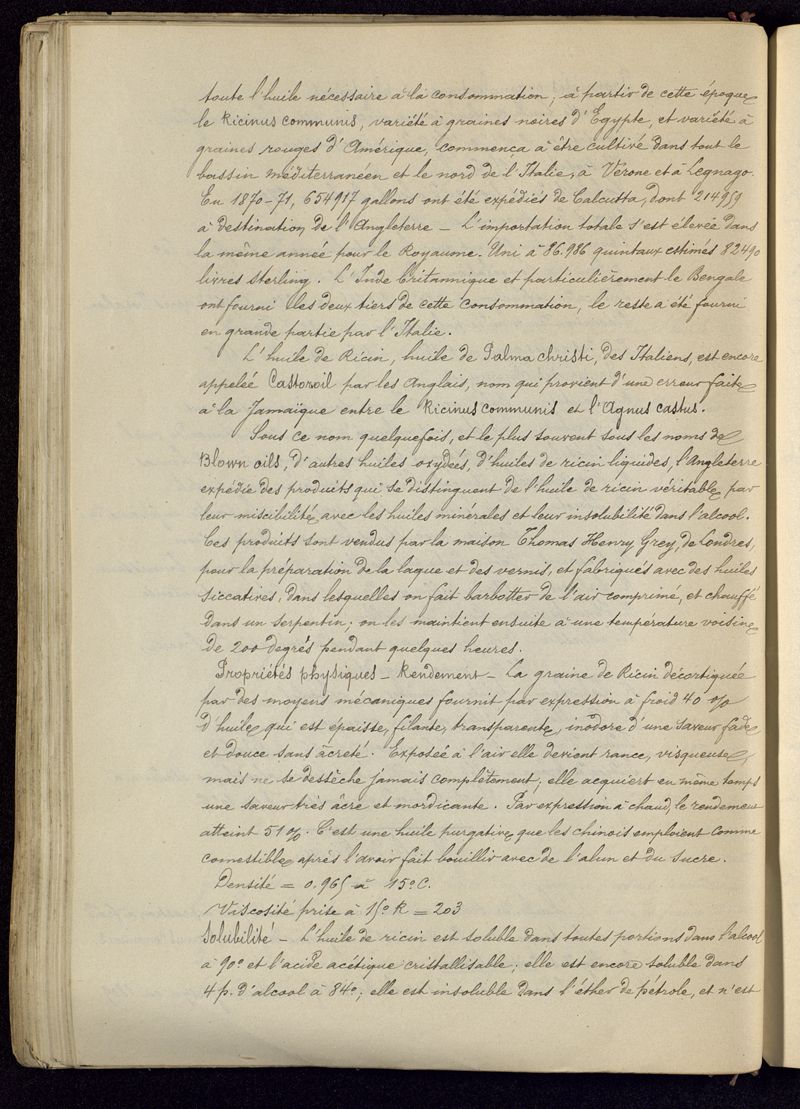 toute l'huile nécessaire à la consommation, à partir de cette époque
le Ricinus communis, variété à graines noires d'Egypte, et variété à
graines rouges d'Amérique, commença à être cultivé dans tout le
bassin méditerranéen et le nord de l'Italie, à Vérone et à Legnago.
En 1870-71, 654917 gallons ont été expédiés de Calcutta, dont 214959
à destination de l'Angleterre – L'importation totale s'est élevée dans
la même année pour le Royaume-Uni à 86.986 quintaux estimés 82490
livres sterling. L'Inde britannique et particulièrement le Bengale
ont fourni les deux tiers de cette consommation, le reste a été fourni
en grande partie par l'Italie.
L'huile de Ricin, huile de Palma christi, des Italiens, est encore
appelée Castoroil par les Anglais, nom qui provient d'une erreur faite
à la Jamaïque entre le Ricinus communis et l'Agnus castus.
Sous ce nom quelquefois, et le plus souvent sous les noms de
Blown oils, d'autres huiles oxydées, d'huiles de ricin liquides, l'Angleterre
expédie des produits qui se distinguent de l'huile de ricin véritable par
leur miscibilité avec les huiles minérales et leur insolubilité dans l'alcool.
Ces produits sont vendus par la maison Thomas Henry Grey, de Londres,
pour la préparation de la laque et des vernis, et fabriqués avec des huiles
siccatives, dans lesquelles on fait barbotter de l'air comprimé, et chauffé
dans un serpentin; on les maintient ensuite à une température voisine
de 200 degrés pendant quelques heures.
Propriétés physiques – Rendement – La graine de Ricin décortiquée
par des moyens mécaniques fournit par expression à froid 40 %
d'huile qui est épaisse, filante, transparente, inodore d'une saveur fade
et douce sans âcreté. Exposée à l'air elle devient rance, visqueuse,
mais ne se dessèche jamais complètement; elle acquiert en même temps
une saveur très âcre et mordicante. Par expression à chaud, le rendement
atteint 51 %. C'est une huile purgative que les chinois emploient comme
comestible après l'avoir fait bouillir avec de l'alun et du sucre.
Densité = 0.965 à 15° C.
Viscosité prise à 15° R = 203
Solubilité – L'huile de ricin est soluble dans toutes portions dans l'alcool
à 90° et l'acide acétique cristallisable; elle est encore soluble dans
4 p. d'alcool à 84°; elle est insoluble dans l'éther de pétrole, et n'est